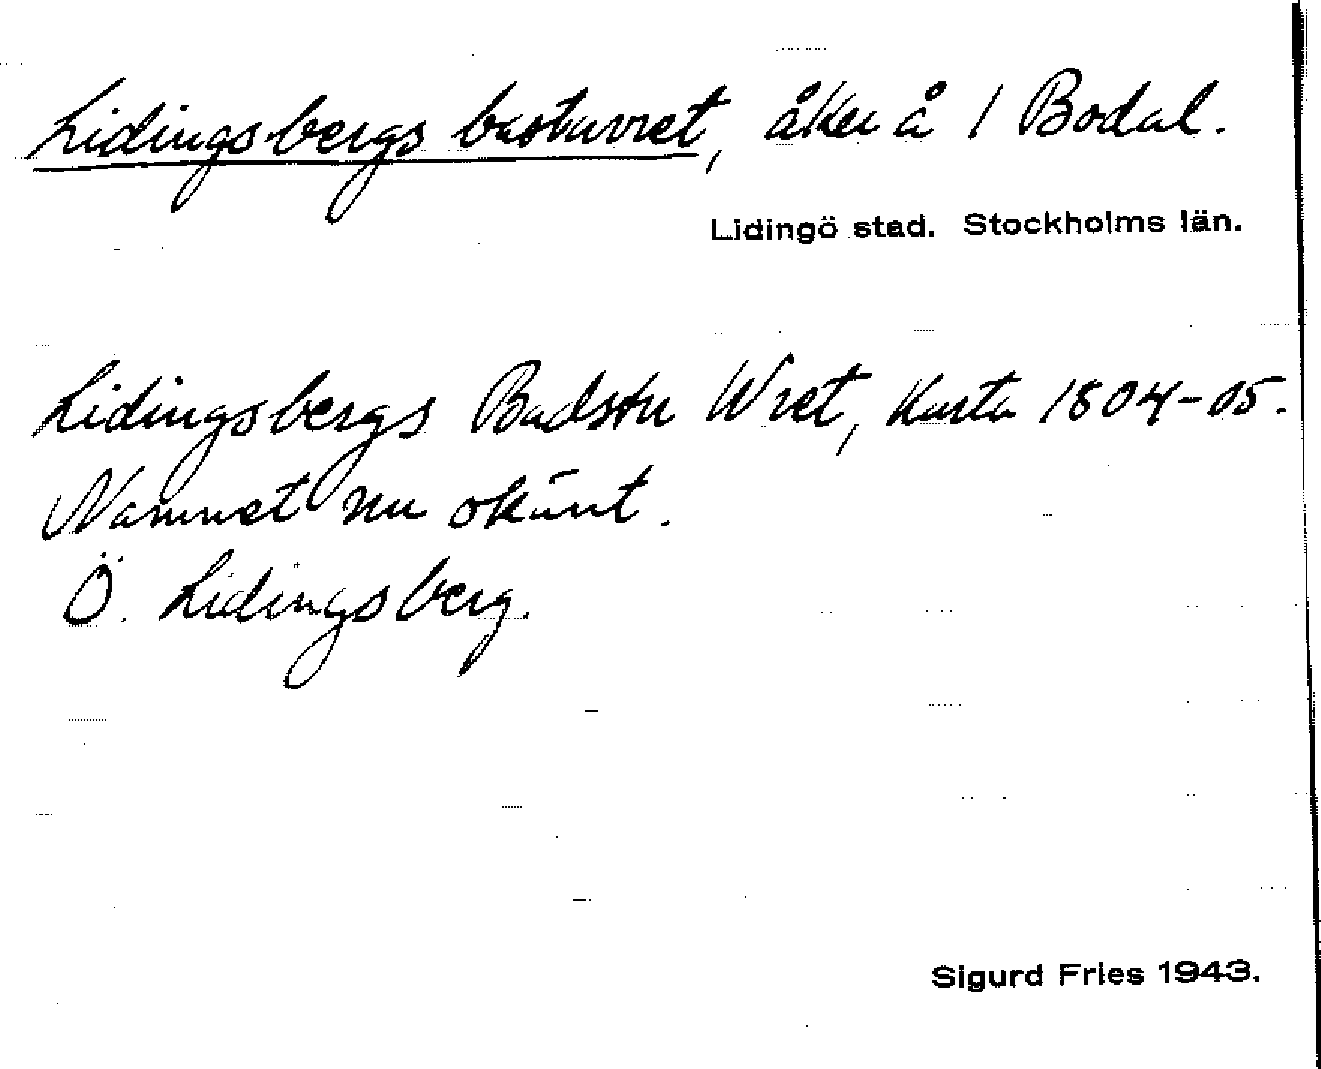 Lidingsbergs bastuvret, åker å 1 Bodal.
Lidingö stad. Stockholms län.
Lidingsbergs Badstu Wret, Karta 1804-05.
Namnet nu okänt.
Ö. Lidingsberg.
Sigurd Fries 1943.